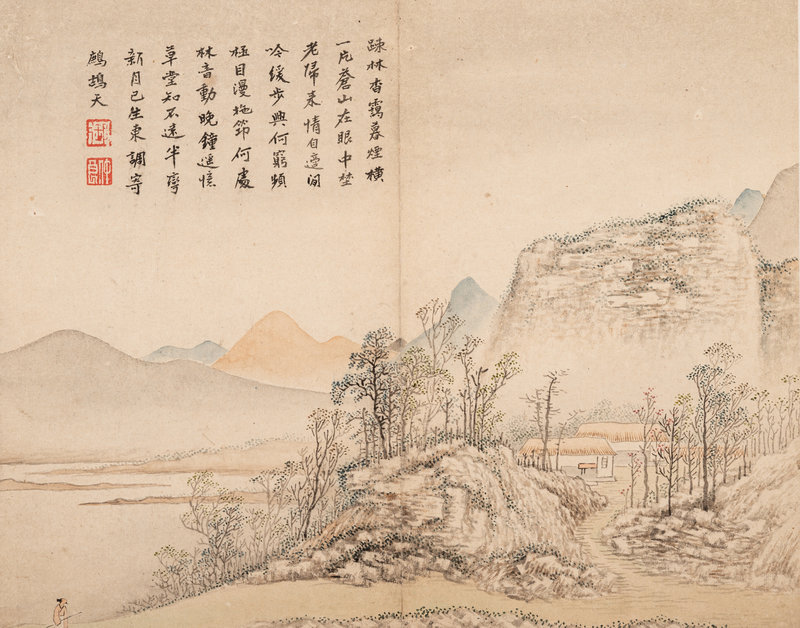 踈林杳靄暮煙橫
一片蒼山在眼中埜
老歸来情自適閒
吟緩步興何窮頻
極目漫拖筇何處
林音動晚鐘遥憶
草堂知不遠半彎
新月已生東調寄
鷓鴣天